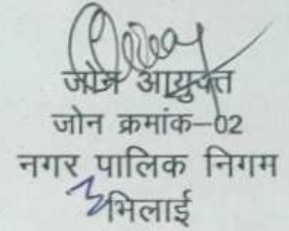 जोन आयुक्त
जोन क्रमांक–02
नगर पालिक निगम
भिलाई